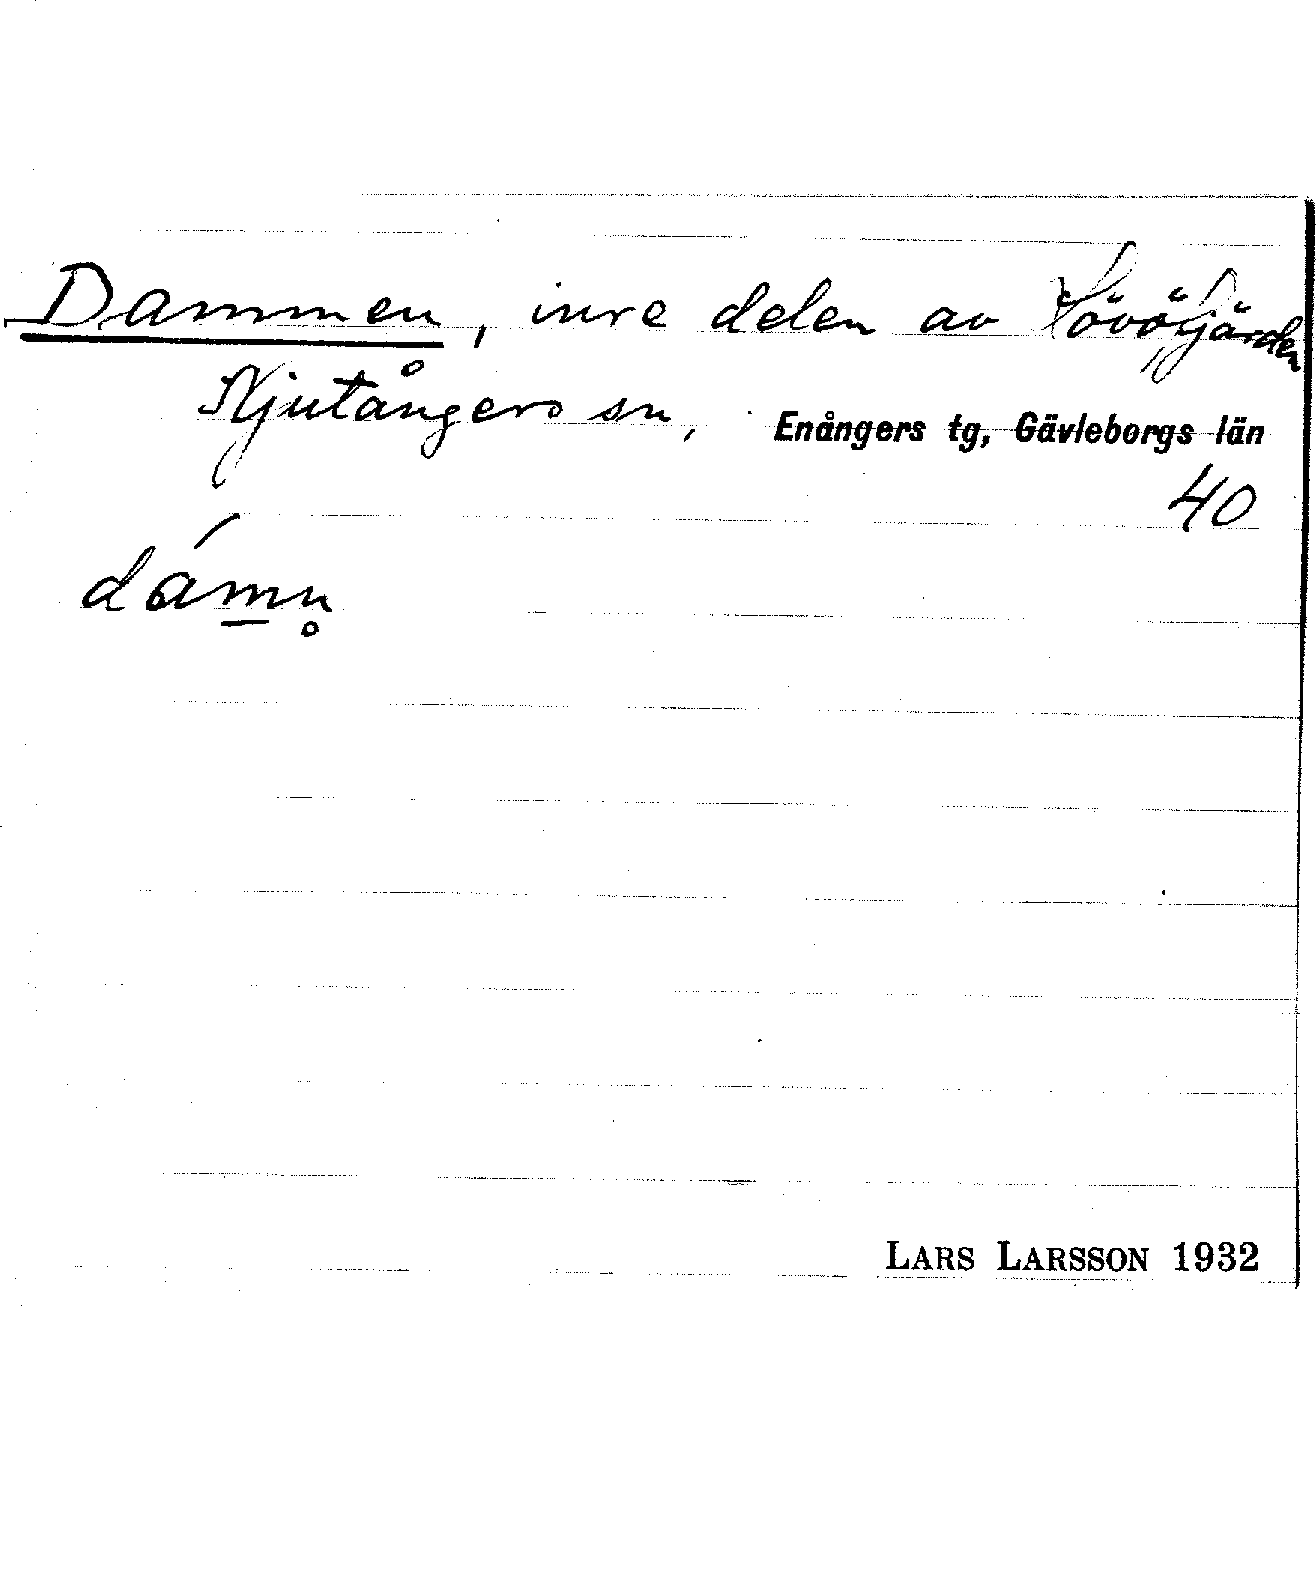 Dammen, inre delen av Lövöfjärden
Njutångers sn, Enångers tg, Gävleborgs län
40
dámn̥
LARS LARSSON 1932